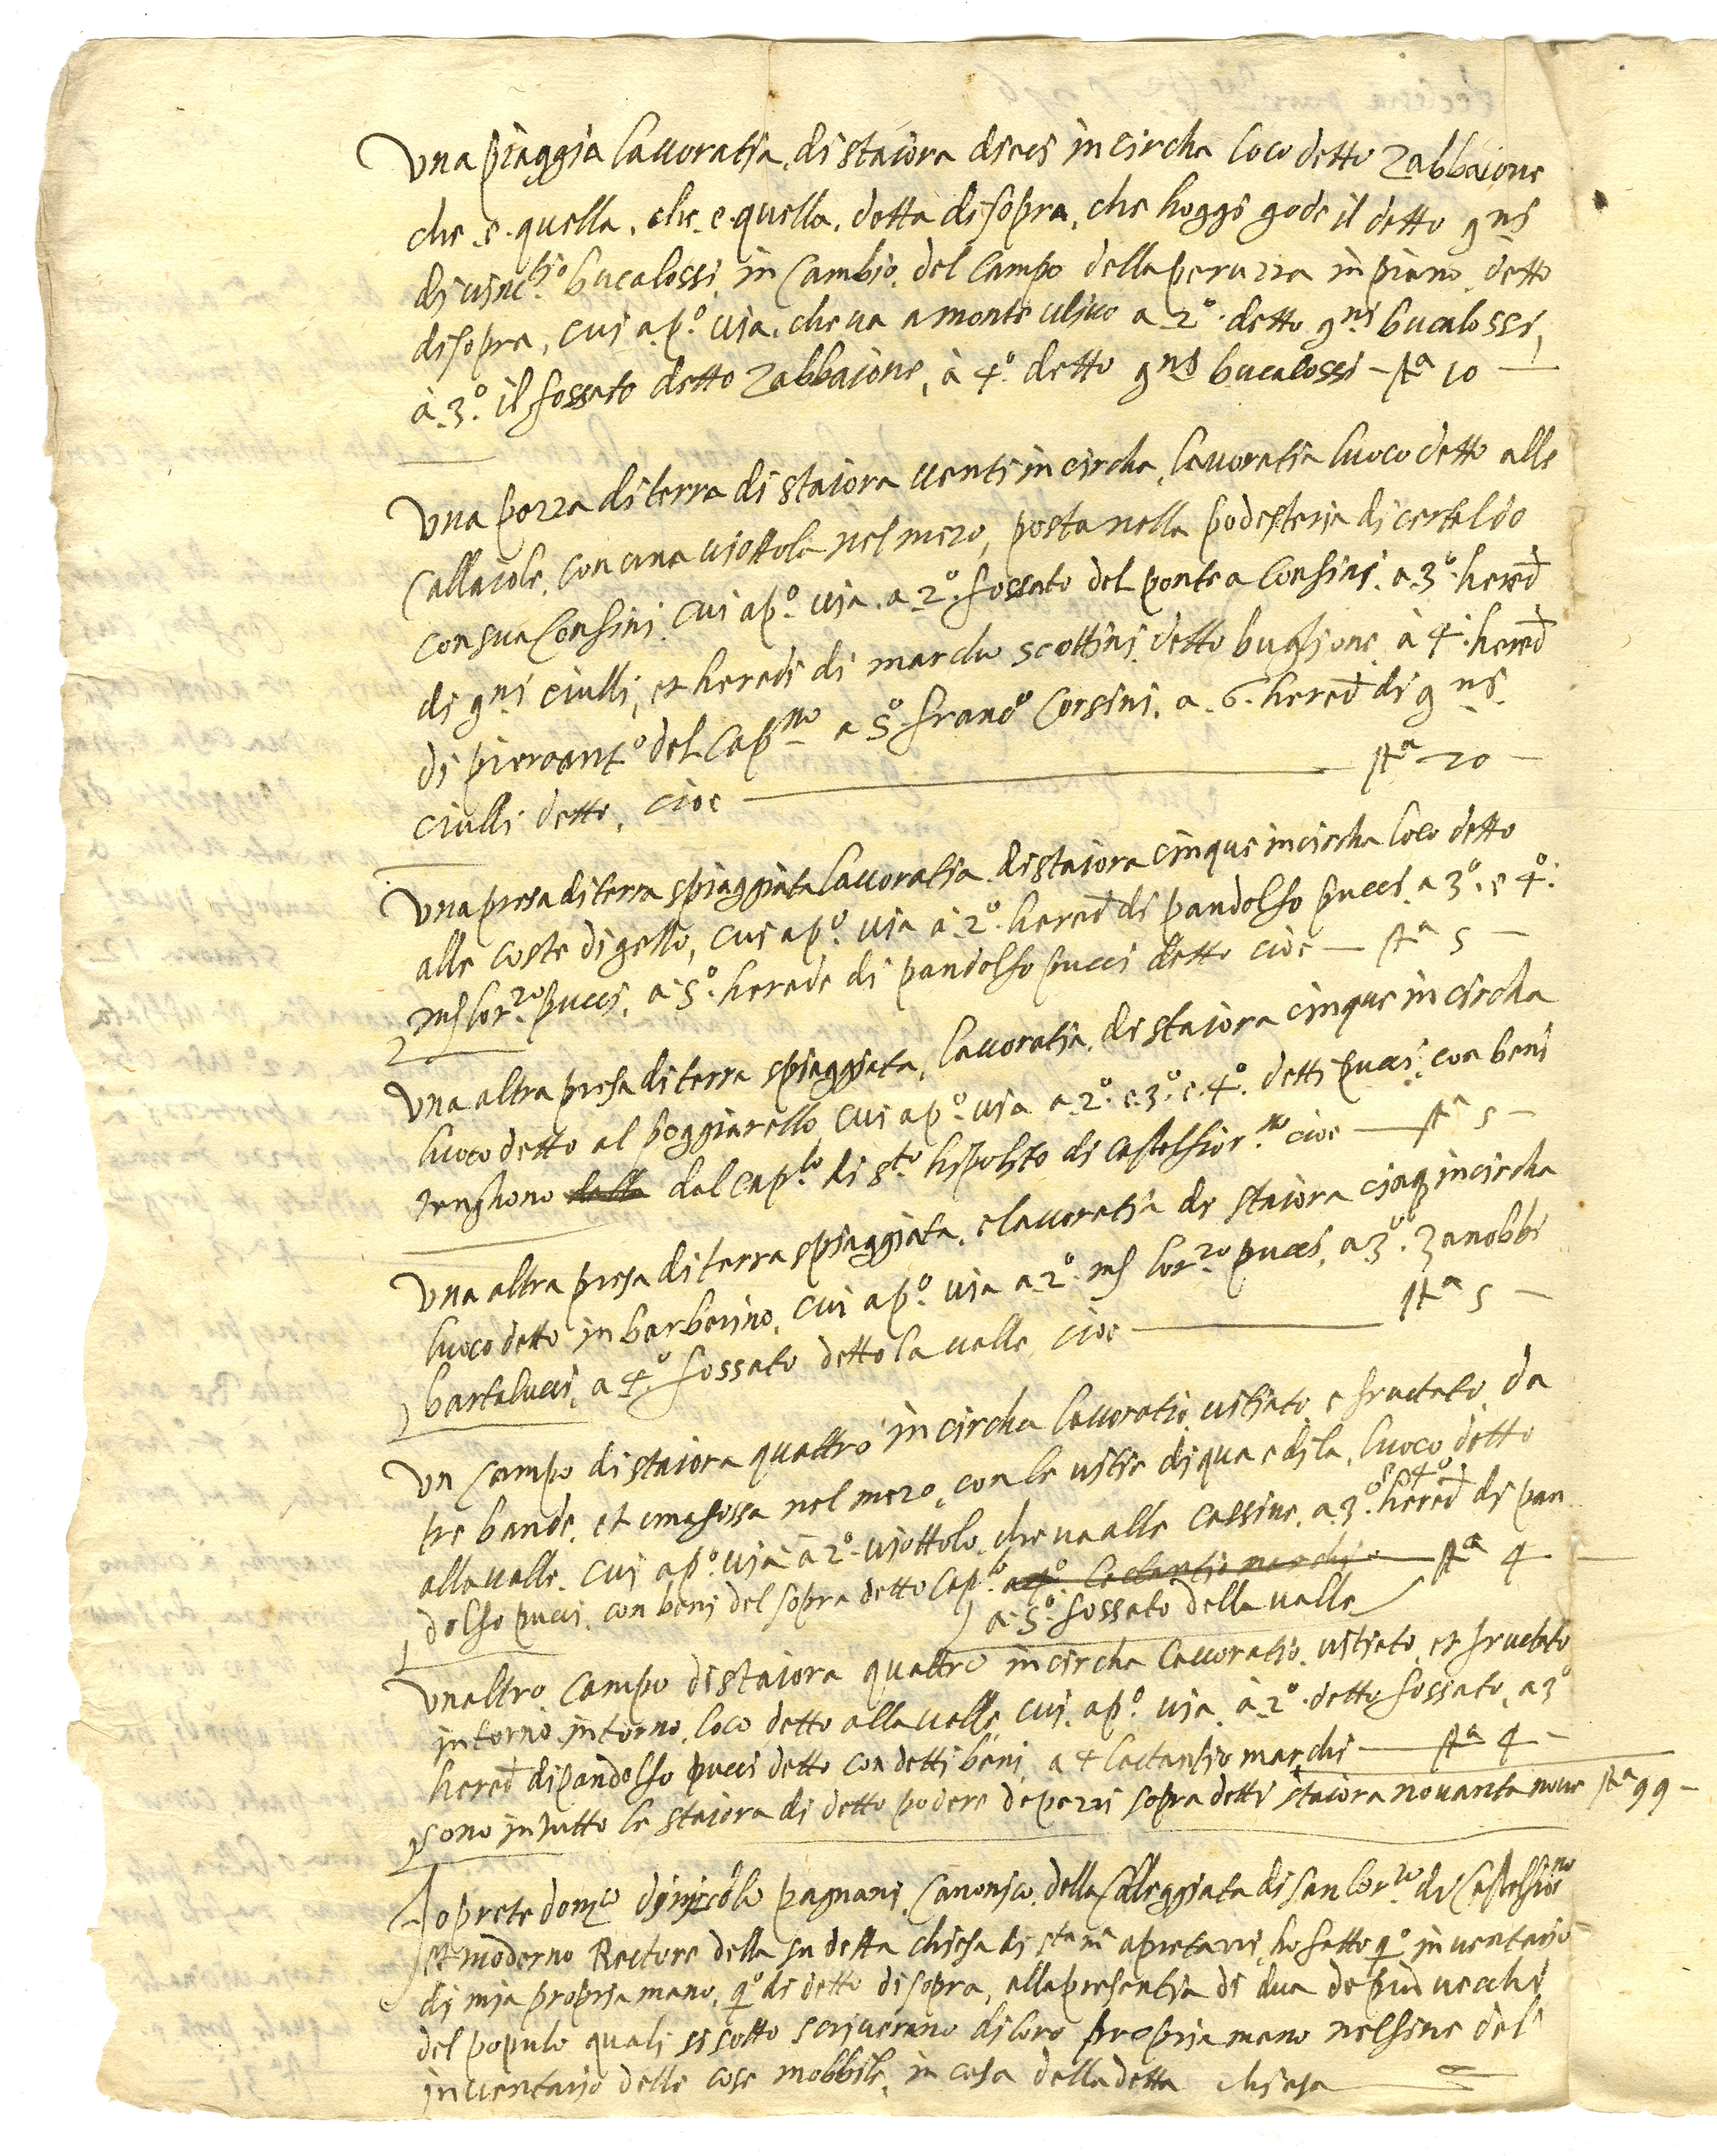 Una piaggia lavoratia, di staiora dieci in circha loco detto zabbaione
che .e. quella, che .e. quella, detta di sopra, che hoggi gode il detto gni
di vinc.tio bucalossi, in cambio, del campo della peruzza in piano, detto
di sopra, cui a p.o via, che va a monte ulivo a 2.o detto gni bucalossi,
à 3.o il fossato detto zabbaione, à 4.o detto gni bucalossi – sta 10 —
Una pezza di terra di staiora venti in circha, lavoratia luoco detto alle
callaiole, con una viottola nel mezo, posta nella podesteria di certaldo
con sua confini. cui a p.o via. a 2.o fossato del ponte a confini. a 3.o hered
di gni ciulli, et heredi di marcho scottini, detto buglione, à 4.o hered
di pieroant.o del cap.no a 5.o franc.o Corsini. a .6. hered di gni.
ciulli detto, cioe — sta 20 —
Una presa di terra spiaggiata lavoratia di staiora cinque in circha loco detto
alle coste di gello, cui a p.o via à 2.o hered di pandolfo pucci, a 3.o e 4.o
ms lor.zo pucci, a 5.o herede di pandolfo pucci detto cioe — sta 5 —
Una altra presa di terra spiaggiata, lavoratia, di staiora cinque in circha
luoco detto al poggiarello cui a p.o via a 2.o e 3.o e 4.o detti pucci, con beni
tenghono della dal cap.lo di s.to hipolito di castelfior.no cioe — sta 5 —
Una altra presa di terra spiaggiata, e lavoratia di staiora cinq in circha
luoco detto in barberino, cui a p.o via a 2.o ms lor.zo pucci, a 3.o zanobbi
bartalucci, a 4.o fossato detto la valle, cioe — sta 5 —
Un campo di staiora quattro in circha lavoratio, vitiato e fructato, da
tre bande, et una fossa nel mezo, con le vitie di qua e di la, luoco detto
alla valle. cui a p.o via à 2.o viottolo, che va alle cassine, a 3.o e 4.o hered di pan
dolfo pucci, con beni del sopra detto cap.lo a 4.o lactantio marchi — sta 4 —
a 5.o fossato della valle
Un altro campo di staiora quattro in circha lavoratio, vitiato, et fructato
intorno, intorno, loco detto alla valle, cui a p.o via, à 2.o detto fossato, a 3.o
hered di pandolfo pucci detto con detti beni, a 4 lactantio marchi — sta 4 —
sono in tutto le staiora di detto podere de pezzi sopra detti staiora novanta nove sta 99 —
Io prete dom.co di niccolo pagnani, canonico, della colleggiata di san lor.zo di castelfior.no
et moderno Rectore della su detta chiesa di s.ta m.a a pietazzi, ho fatto q.o inventario
di mia propria mano, q.o di detto di sopra, alla presentia di dua de più vecchi
del populo quali si sotto scriverano di loro propria mano nel fine del
inventario delle cose mobbile, in casa della detta chiesa —